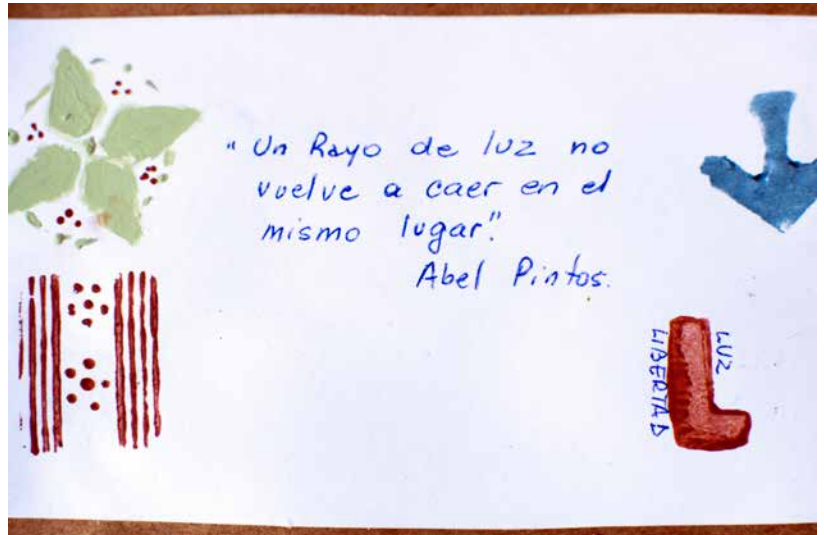 "Un Rayo de luz no
vuelve a caer en el
mismo lugar."
Abel Pintos.
LUZ
LIBERTAD
L